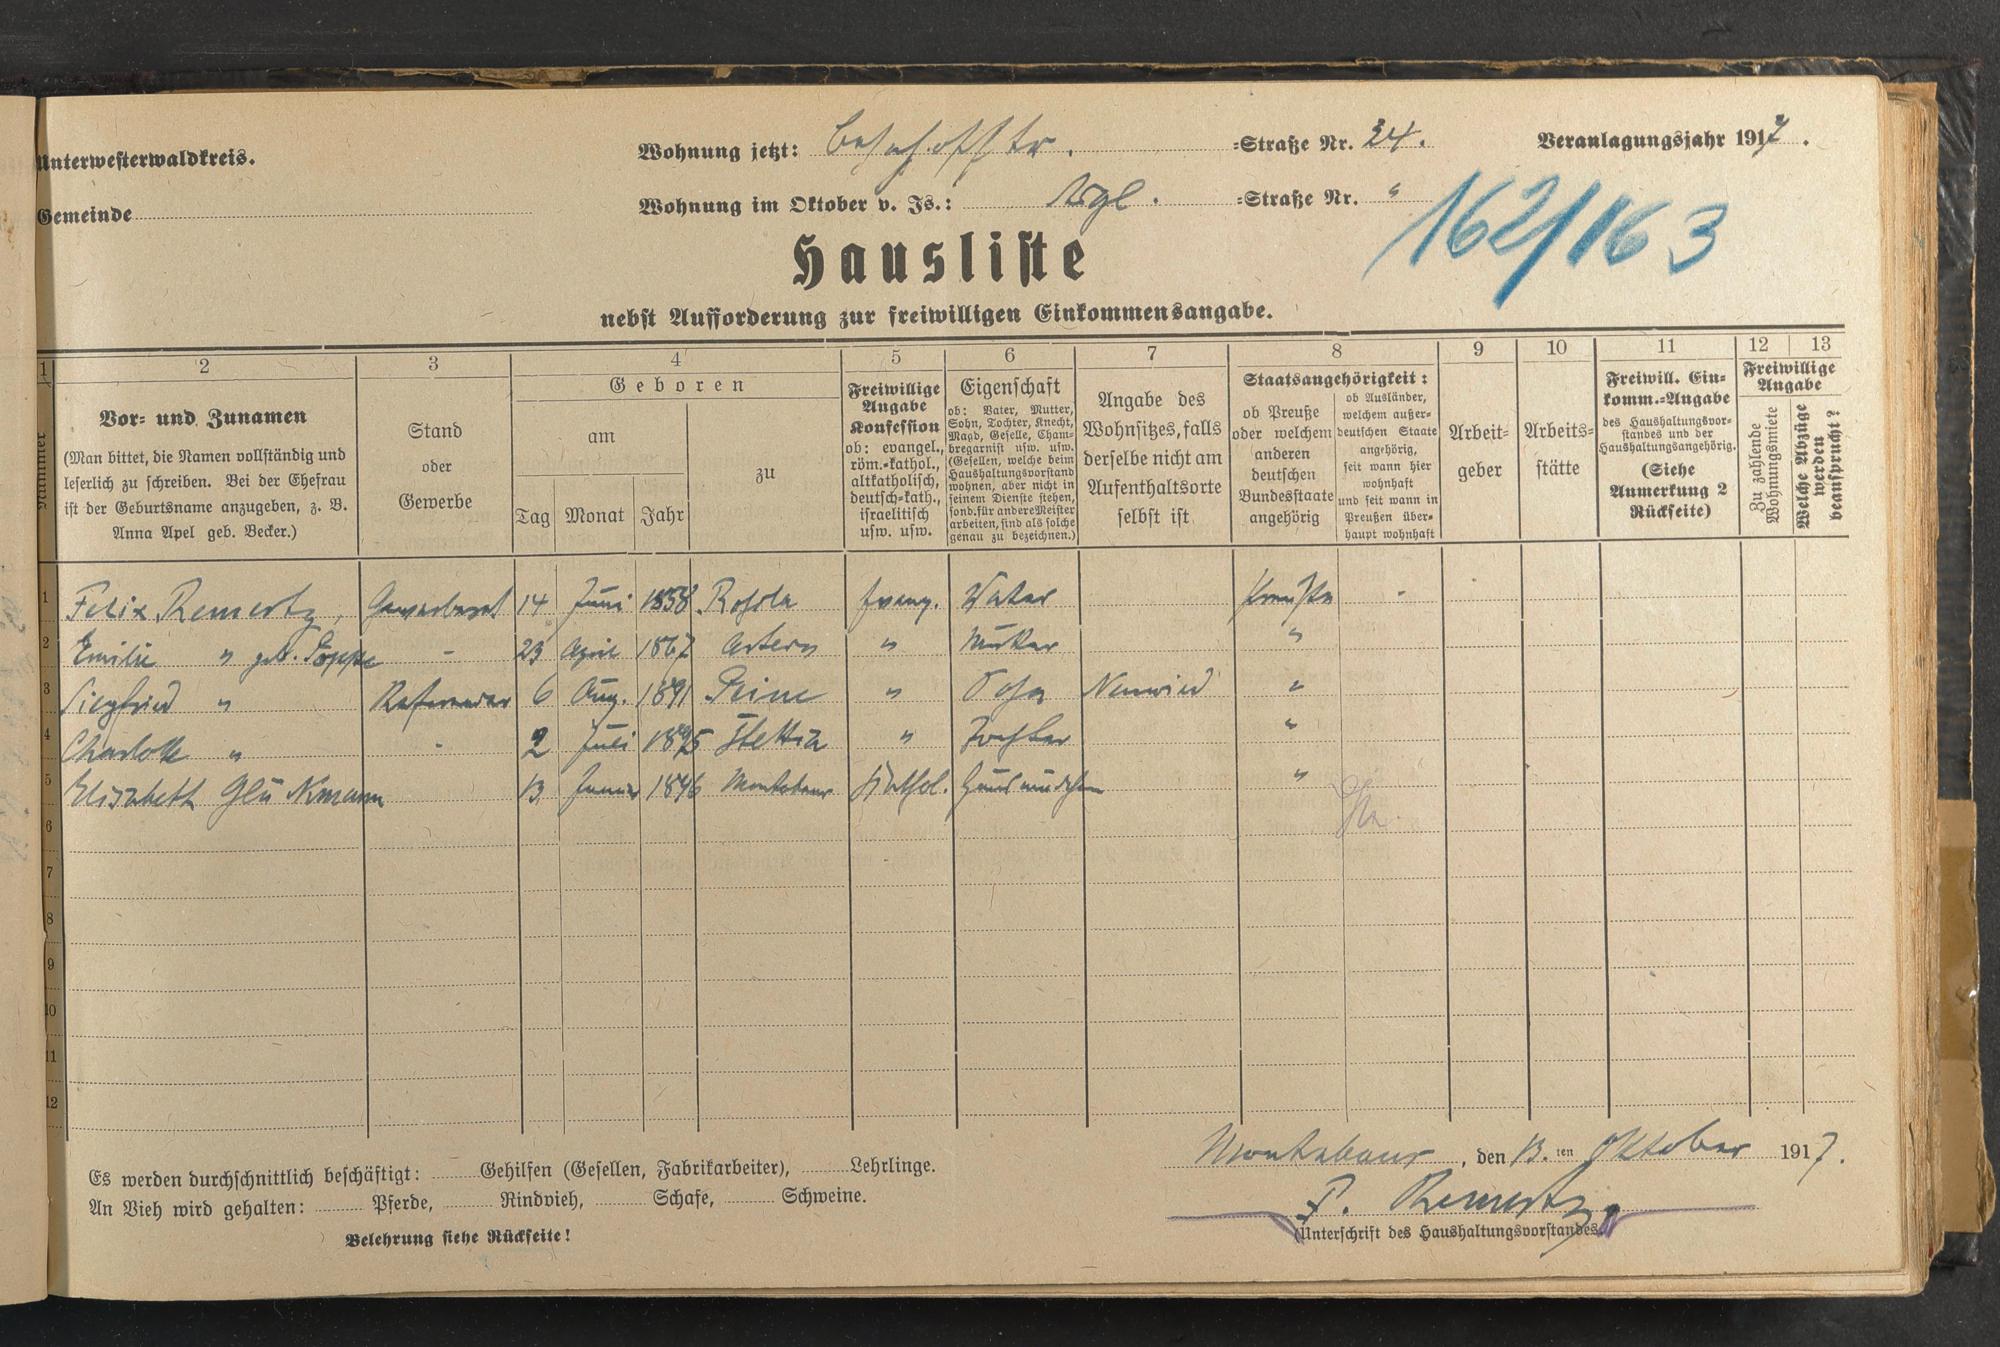 Unterwesterwaldkreis.
Wohnung jetzt: Bahnhofstr. =Straße Nr. 34.
Veranlagungsjahr 1917.
Gemeinde
Wohnung im Oktober v. Js.: dsgl. =Straße Nr. "
162/163
Hausliste
nebst Aufforderung zur freiwilligen Einkommensangabe.
1 2 3 4 5 6 7 8 9 10 11 12 13
Nummer
Vor- und Zunamen
(Man bittet, die Namen vollständig und
leserlich zu schreiben. Bei der Ehefrau
ist der Geburtsname anzugeben, z. B.
Anna Apel geb. Becker.)
Stand
oder
Gewerbe
Geboren
am
Tag Monat Jahr
zu
Freiwillige
Angabe
Konfession
ob: evangel.,
röm.=kathol.,
altkatholisch,
deutsch=kath.,
israelitisch
usw. usw.
Eigenschaft
ob: Vater, Mutter,
Sohn, Tochter, Knecht,
Magd, Geselle, Cham=
bregarnist usw. usw.
(Gesellen, welche beim
Haushaltungsvorstand
wohnen, aber nicht in
seinem Dienste stehen,
sond. für andere Meister
arbeiten, sind als solche
genau zu bezeichnen.)
Angabe des
Wohnsitzes, falls
derselbe nicht am
Aufenthaltsorte
selbst ist
Staatsangehörigkeit:
ob Preuße
oder welchem
anderen
deutschen
Bundesstaate
angehörig
ob Ausländer,
welchem außer=
deutschen Staate
angehörig,
seit wann hier
wohnhaft
und seit wann in
Preußen über=
haupt wohnhaft
Arbeit=
geber
Arbeits=
stätte
Freiwill. Ein=
komm.=Angabe
des Haushaltungsvor=
standes und der
Haushaltungsangehörig.
(Siehe
Anmerkung 2
Rückseite)
Freiwillige
Angabe
Zu zahlende
Wohnungsmiete
Welche Abzüge
werden
beansprucht?
1 Felix Remertz, Gewerberat 14 Juni 1858 Roßla evang. Vater Preuße -
2 Emilie " geb. Poppe - 23 April 1867 Artern " Mutter "
3 Siegfried " Referendar 6 Aug. 1891 Peine " Sohn Neuwied "
4 Charlotte " - 2 Juli 1895 Stettin " Tochter "
5 Elisabeth 13 Januar 1896 Montabaur Kathol. Hausmädchen "
6
7
8
9
10
11
12
Es werden durchschnittlich beschäftigt: Gehilfen (Gesellen, Fabrikarbeiter), Lehrlinge.
An Vieh wird gehalten: Pferde, Rindvieh, Schafe, Schweine.
Belehrung siehe Rückseite!
Montabaur, den 13.ten Oktober 1917.
F. Remertz
(Unterschrift des Haushaltungsvorstandes.)